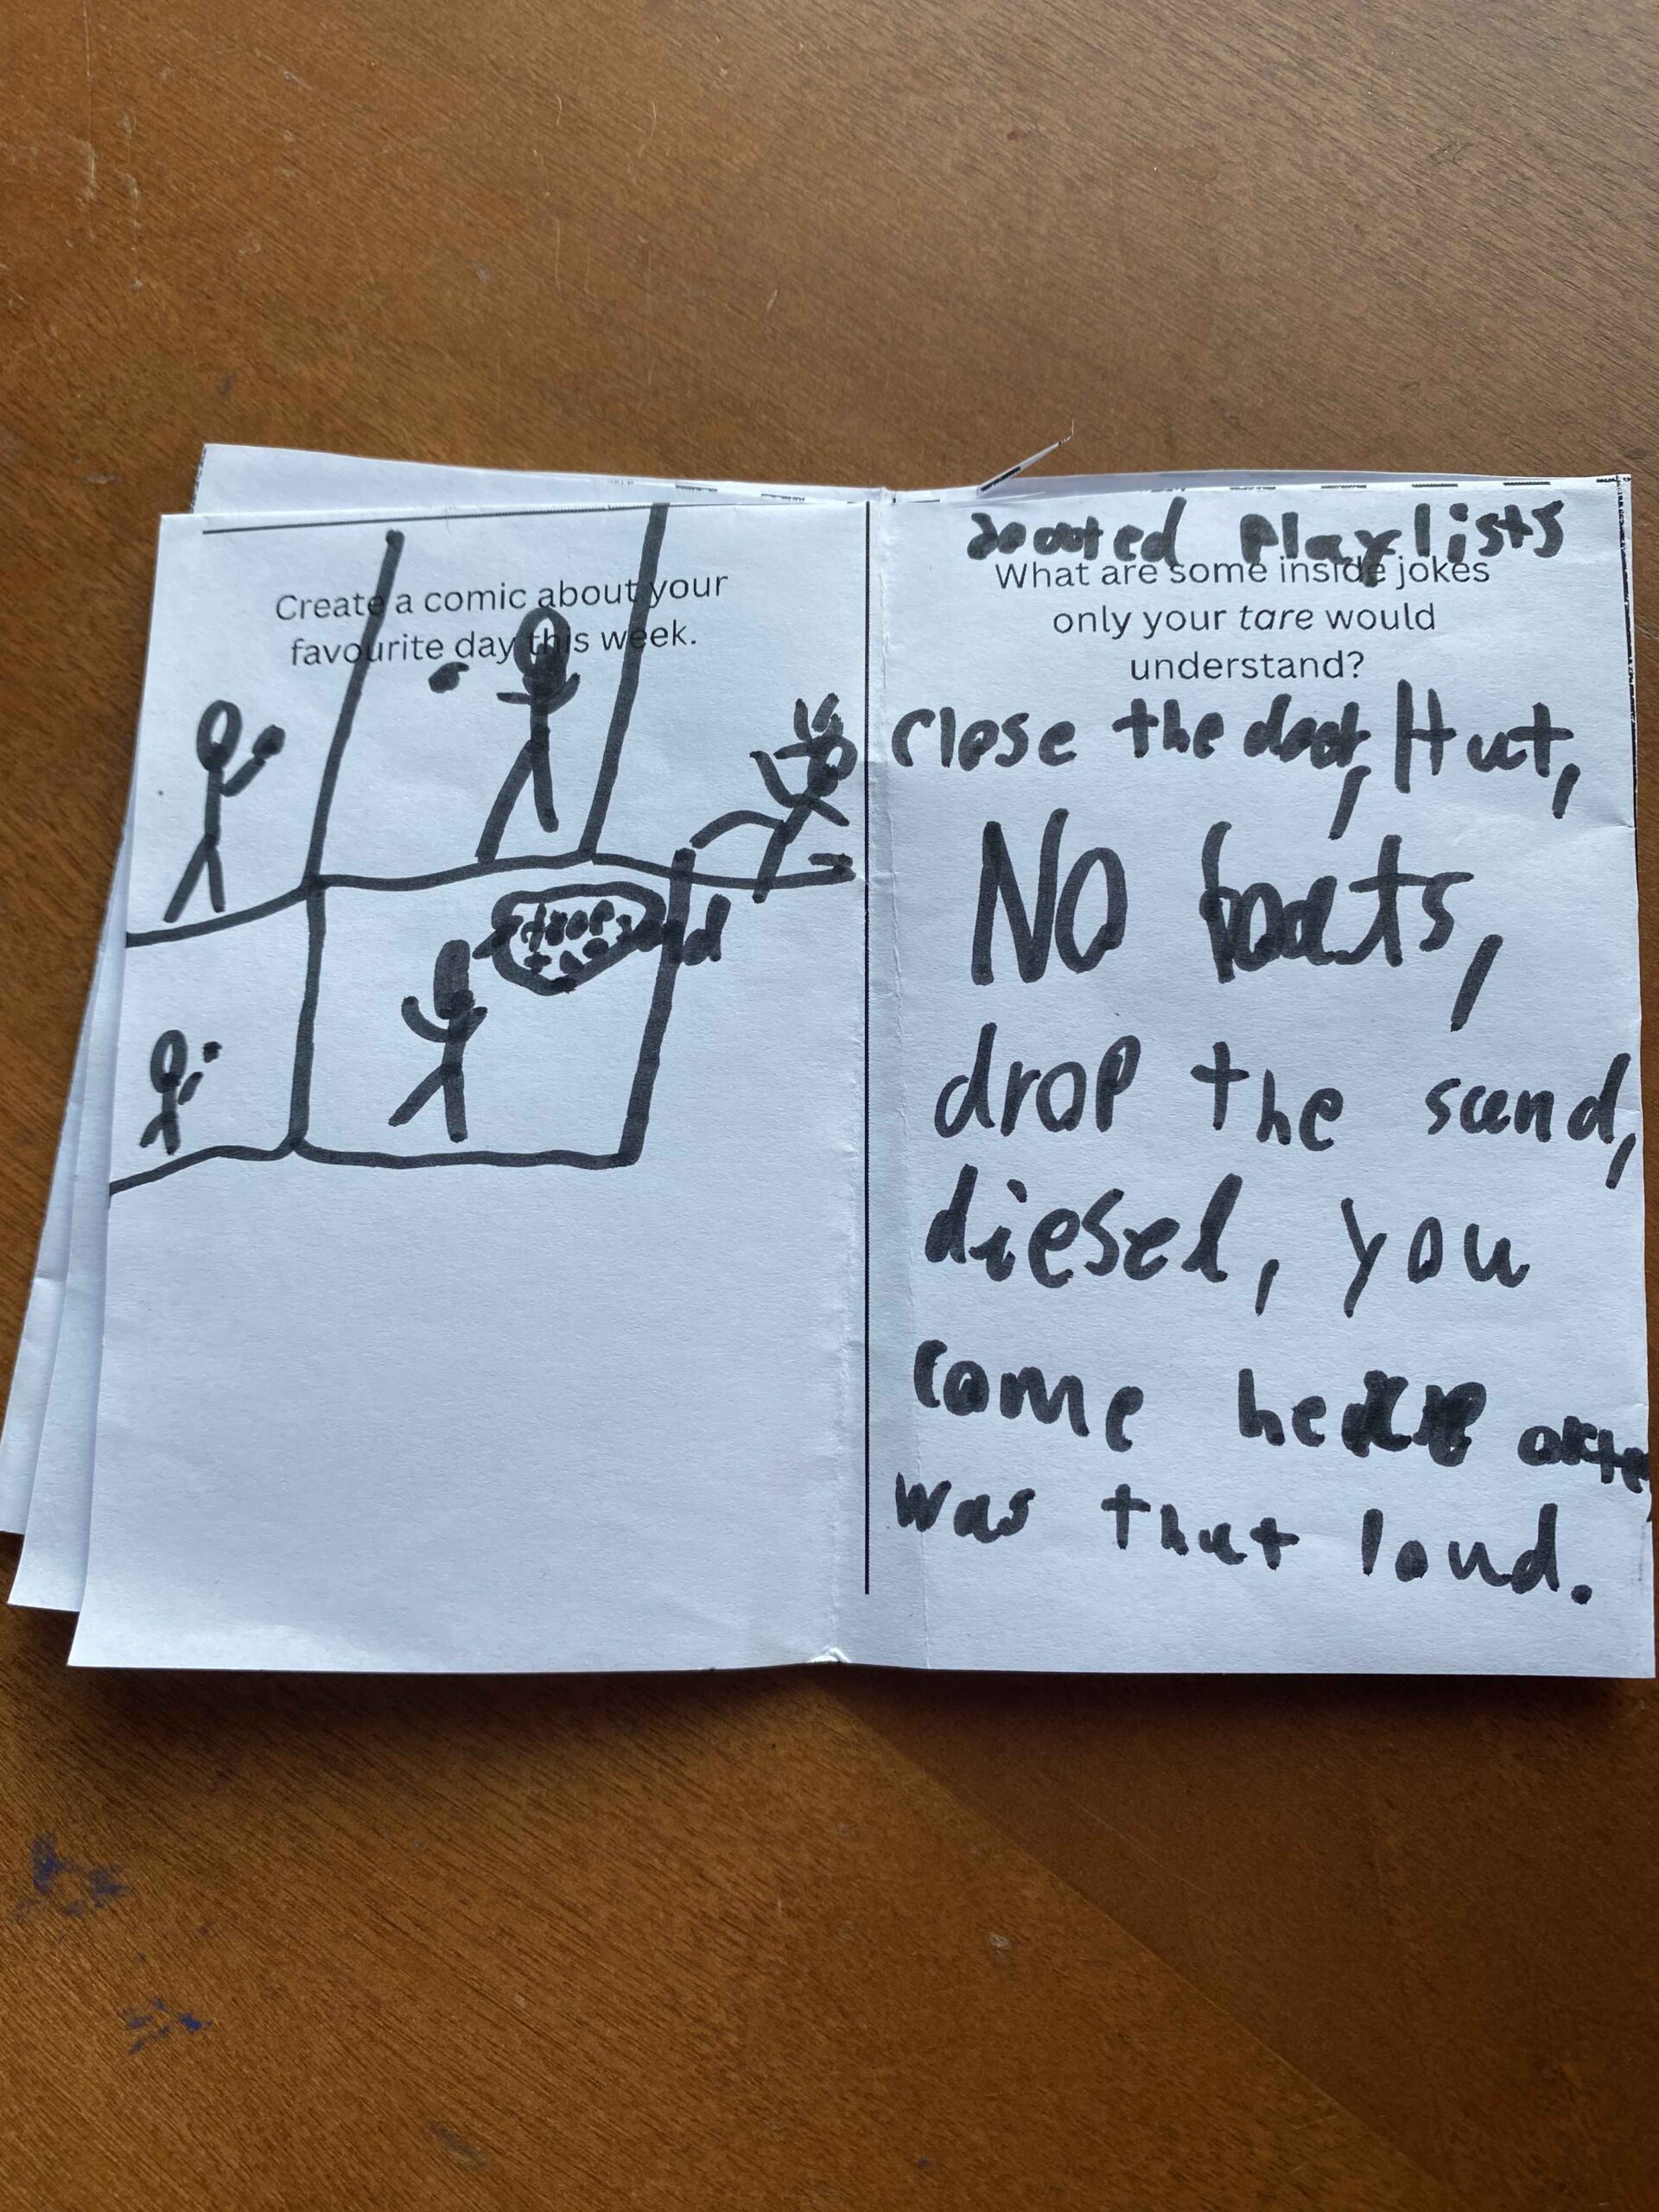 Create a comic about your
favourite day this week.
drop
sand
playlists
What are some inside jokes
only your tare would
understand?
close the door, Hut,
NO boats,
drop the sand,
diesel, you
come here
was that loud.